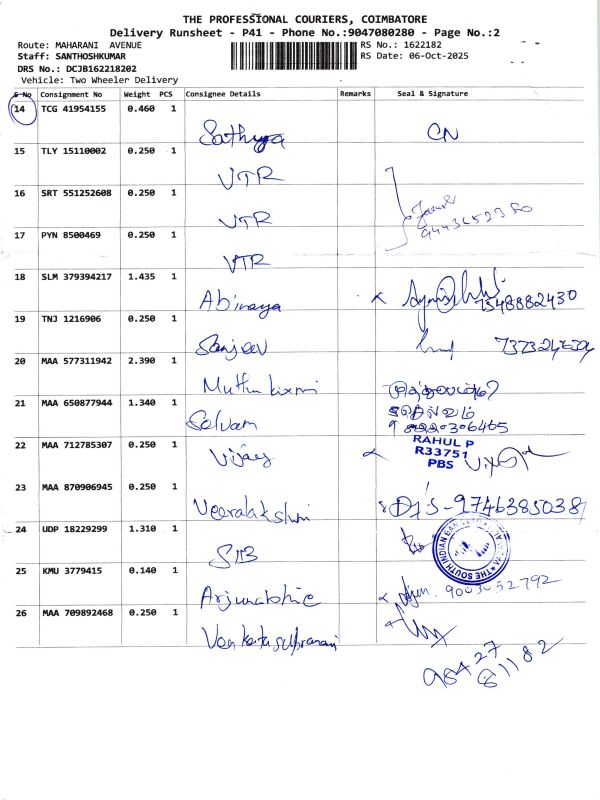 THE PROFESSIONAL COURIERS, COIMBATORE
Delivery Runsheet - P41 - Phone No.:9047080280 - Page No.:2
Route: MAHARANI AVENUE RS No.: 1622182
Staff: SANTHOSHKUMAR RS Date: 06-Oct-2025
DRS No.: DCJB162218202
Vehicle: Two Wheeler Delivery
S No Consignment No Weight PCS Consignee Details Remarks Seal & Signature
14 TCG 41954155 0.460 1
Sathya CN
15 TLY 15110002 0.250 1
VTR
16 SRT 551252608 0.250 1
VTR
17 PYN 8500469 0.250 1
VTR
18 SLM 379394217 1.435 1
Abinaya 7548882430
19 TNJ 1216906 0.250 1
Sanjeev
20 MAA 577311942 2.390 1
21 MAA 650877944 1.340 1
Selvam
RAHUL P
22 MAA 712785307 0.250 1 R33751
Vijay PBS
23 MAA 870906945 0.250 1
9746385038
24 UDP 18229299 1.310 1
SIB THE SOUTH INDIAN
25 KMU 3779415 0.140 1
26 MAA 709892468 0.250 1
98427
81182